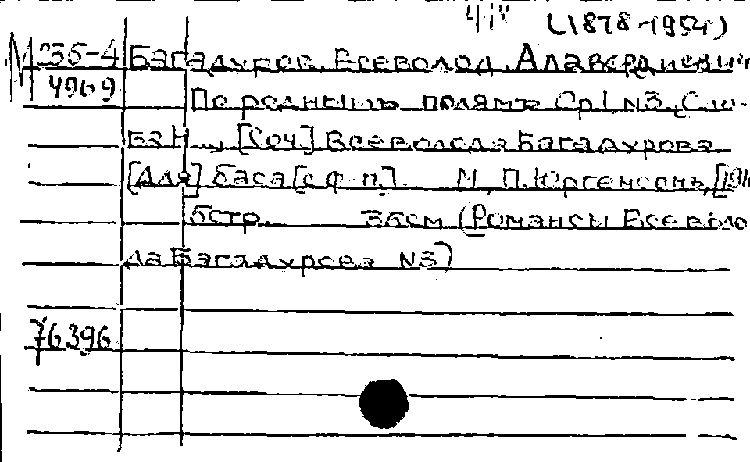 (1878-1954)
М 36-4 Багадуров, Всеволод Алавердиевич
4969 По родным полям. Ор.1 N3. Сло-
ва Н..., [Соч.] Всеволода Багадурова
[Для] баса [с ф-п]. М., П. Юргенсонъ, [191
6стр. 36см (Романсы Всеволо
да Багадурова N3)
76396